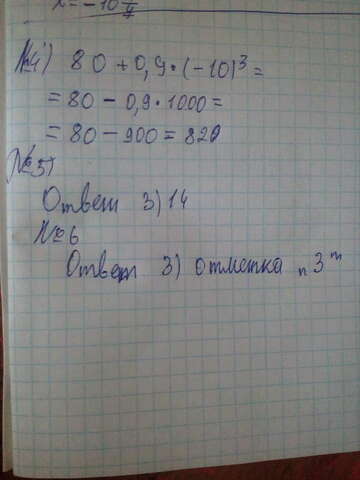 x = -10
№4) 80 + 0,9 · (-10)³ =
= 80 - 0,9 · 1000 =
= 80 - 900 = 820
№5)
Ответ 3) 14
№6
Ответ 3) отметка „3"